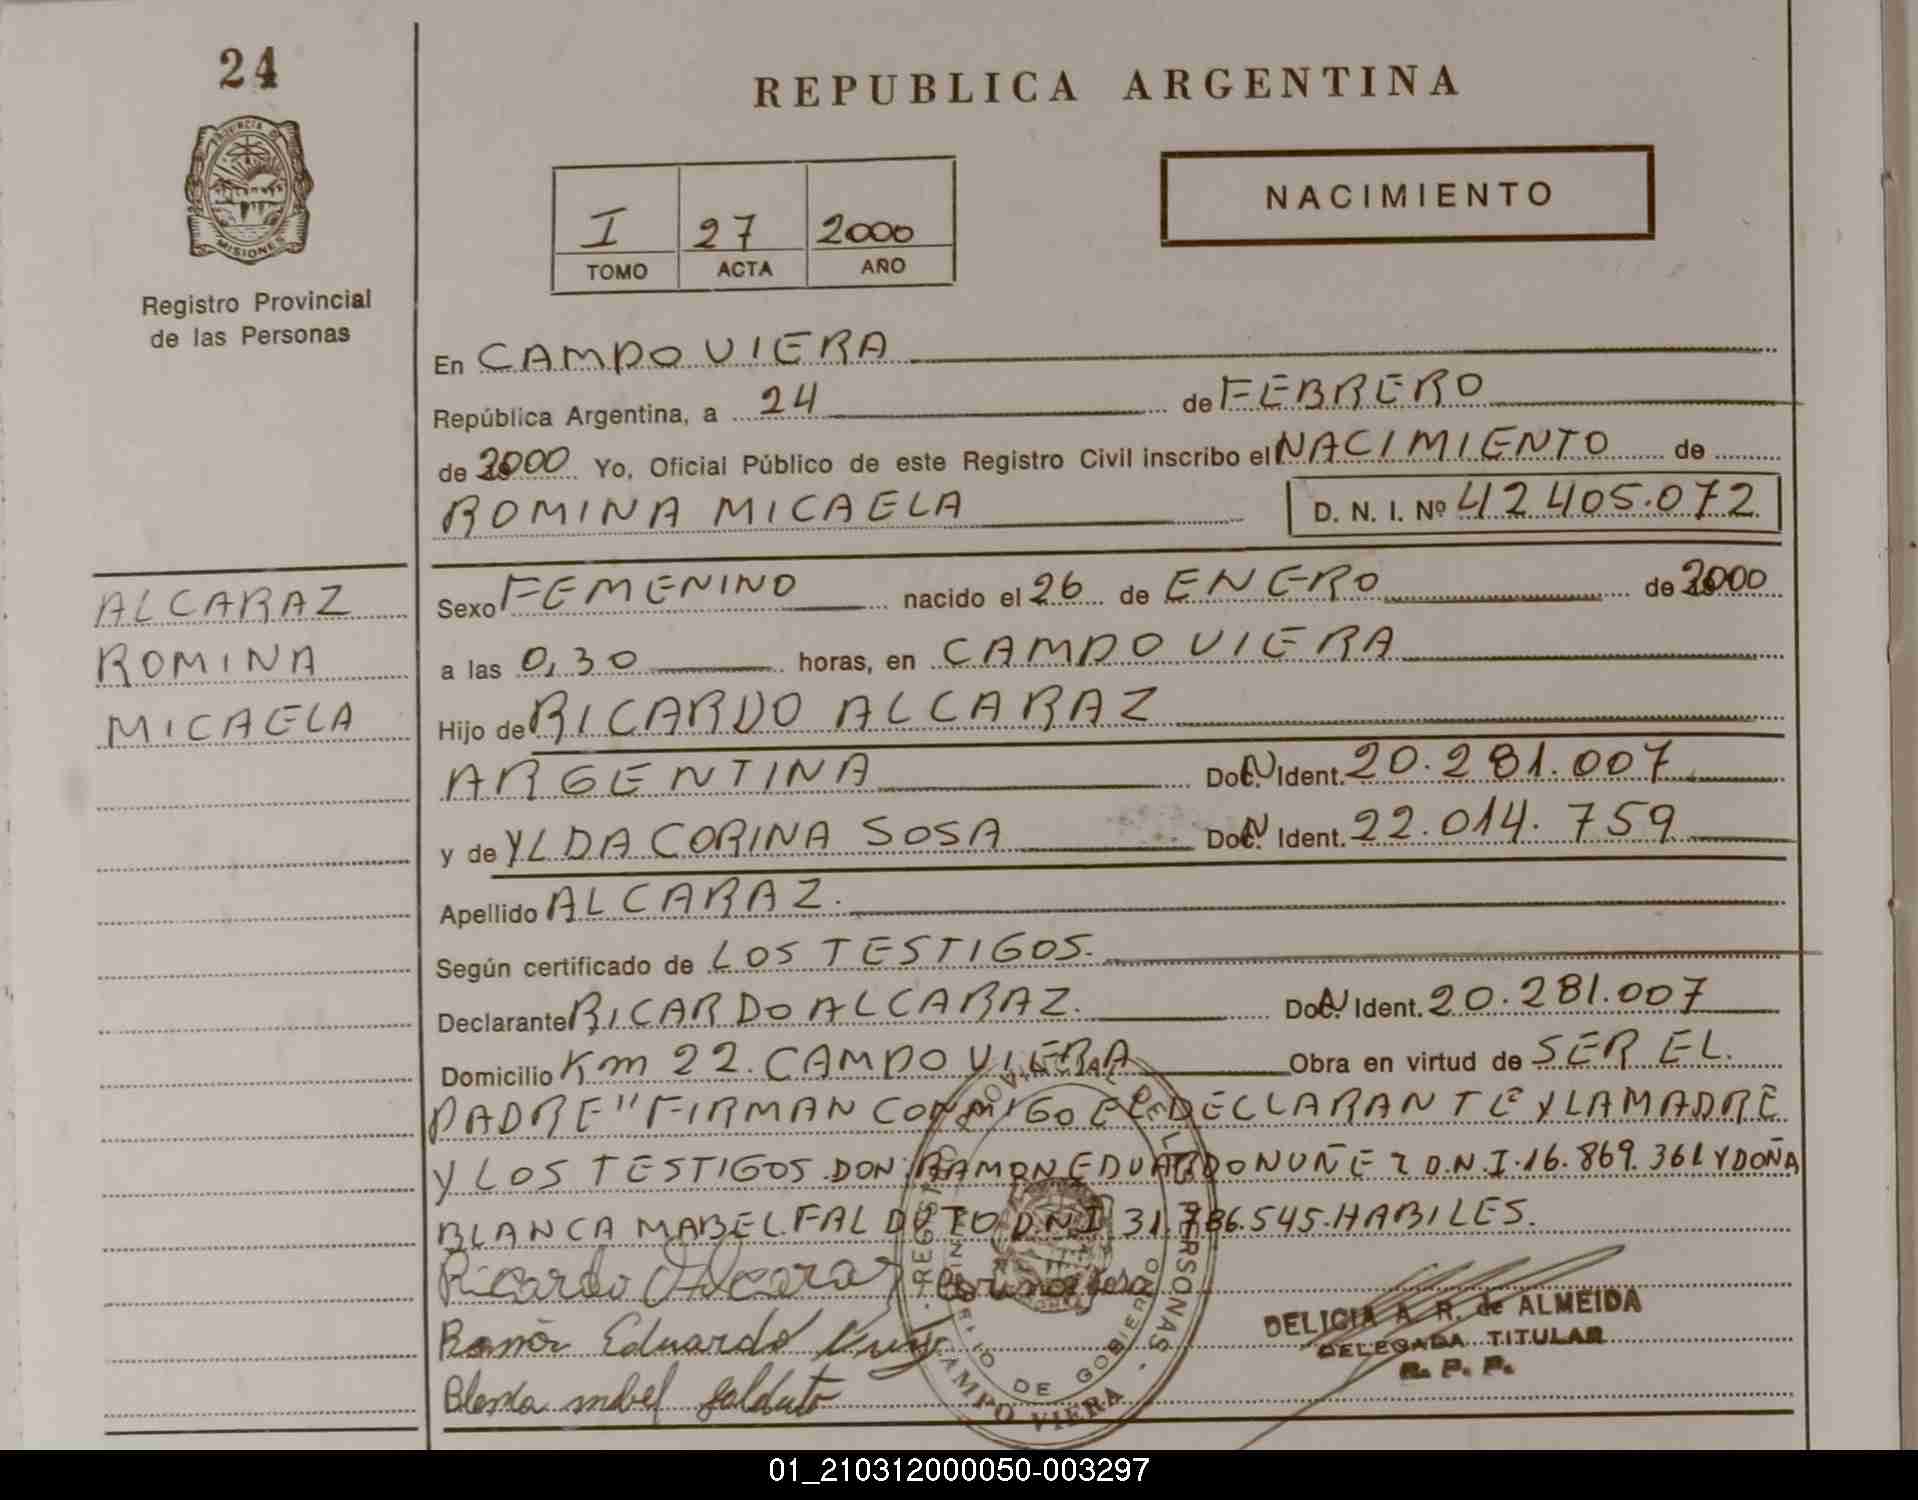 24
REPUBLICA ARGENTINA
PROVINCIA DE
MISIONES
NACIMIENTO
I 27 2000
TOMO ACTA AÑO
Registro Provincial
de las Personas
En CAMPO VIERA
República Argentina, a 24 de FEBRERO
de 2000 Yo, Oficial Público de este Registro Civil inscribo el NACIMIENTO de
ROMINA MICAELA D. N. I. Nº 42.405.072
ALCARAZ
ROMINA
MICAELA
Sexo FEMENINO nacido el 26 de ENERO de 2000
a las 0,30 horas, en CAMPO VIERA
Hijo de RICARDO ALCARAZ
ARGENTINA Doc. Ident. 20.281.007
y de YLDA CORINA SOSA Doc. Ident. 22.014.759
Apellido ALCARAZ.
Según certificado de LOS TESTIGOS.
Declarante RICARDO ALCARAZ. Doc. Ident. 20.281.007
Domicilio Km 22. CAMPO VIERA Obra en virtud de SER EL
PADRE" FIRMAN CONMIGO EL DECLARANTE Y LA MADRE
Y LOS TESTIGOS DON: RAMON EDUARDO NUÑEZ D.N.I. 16.869.361 Y DOÑA
BLANCA MABEL FALDUTO D.N.I 31.786.545. HABILES.
Ricardo Alcaraz Corina Sosa
Ramón Eduardo
Mabel Falduto
REGISTRO PROVINCIAL DE LAS PERSONAS
MINISTERIO DE GOBIERNO
CAMPO VIERA
DELICIA A. R. de ALMEIDA
DELEGADA TITULAR
R. P. P.
01_210312000050-003297